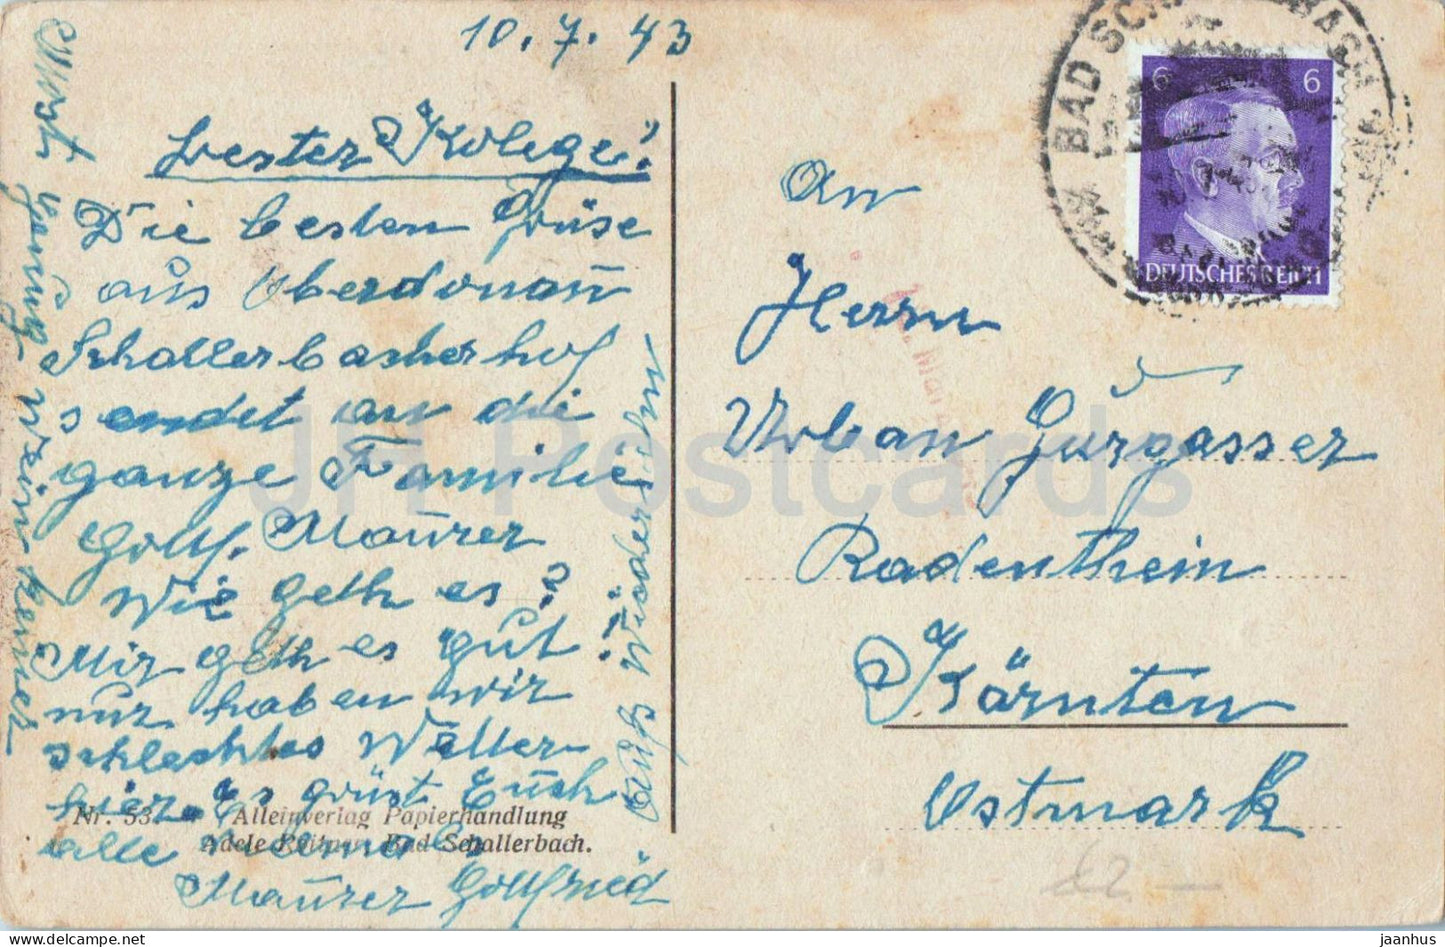 10.7.43
Bester Kolege!
Die besten Grüse
aus Oberdonau
Schallerbacherhof
sendet an die
ganze Familie
Gottf. Maurer
Wie geth es?
Mir geth es gut
nur haben wir
schlechtes Wetter
hier. Es grüst Euch
alle vielmals
Maurer Gottfried
Auf Wiedersehn!
Nr. 53. Alleinverlag Papierhandlung
Adele Bad Schallerbach.
An
Herrn
Urban Gurgasser
Radenthein
Kärnten
Ostmark
BAD SCH BACH
6 6
DEUTSCHES REICH
JH Postcards
jaanhus - delcampe.net